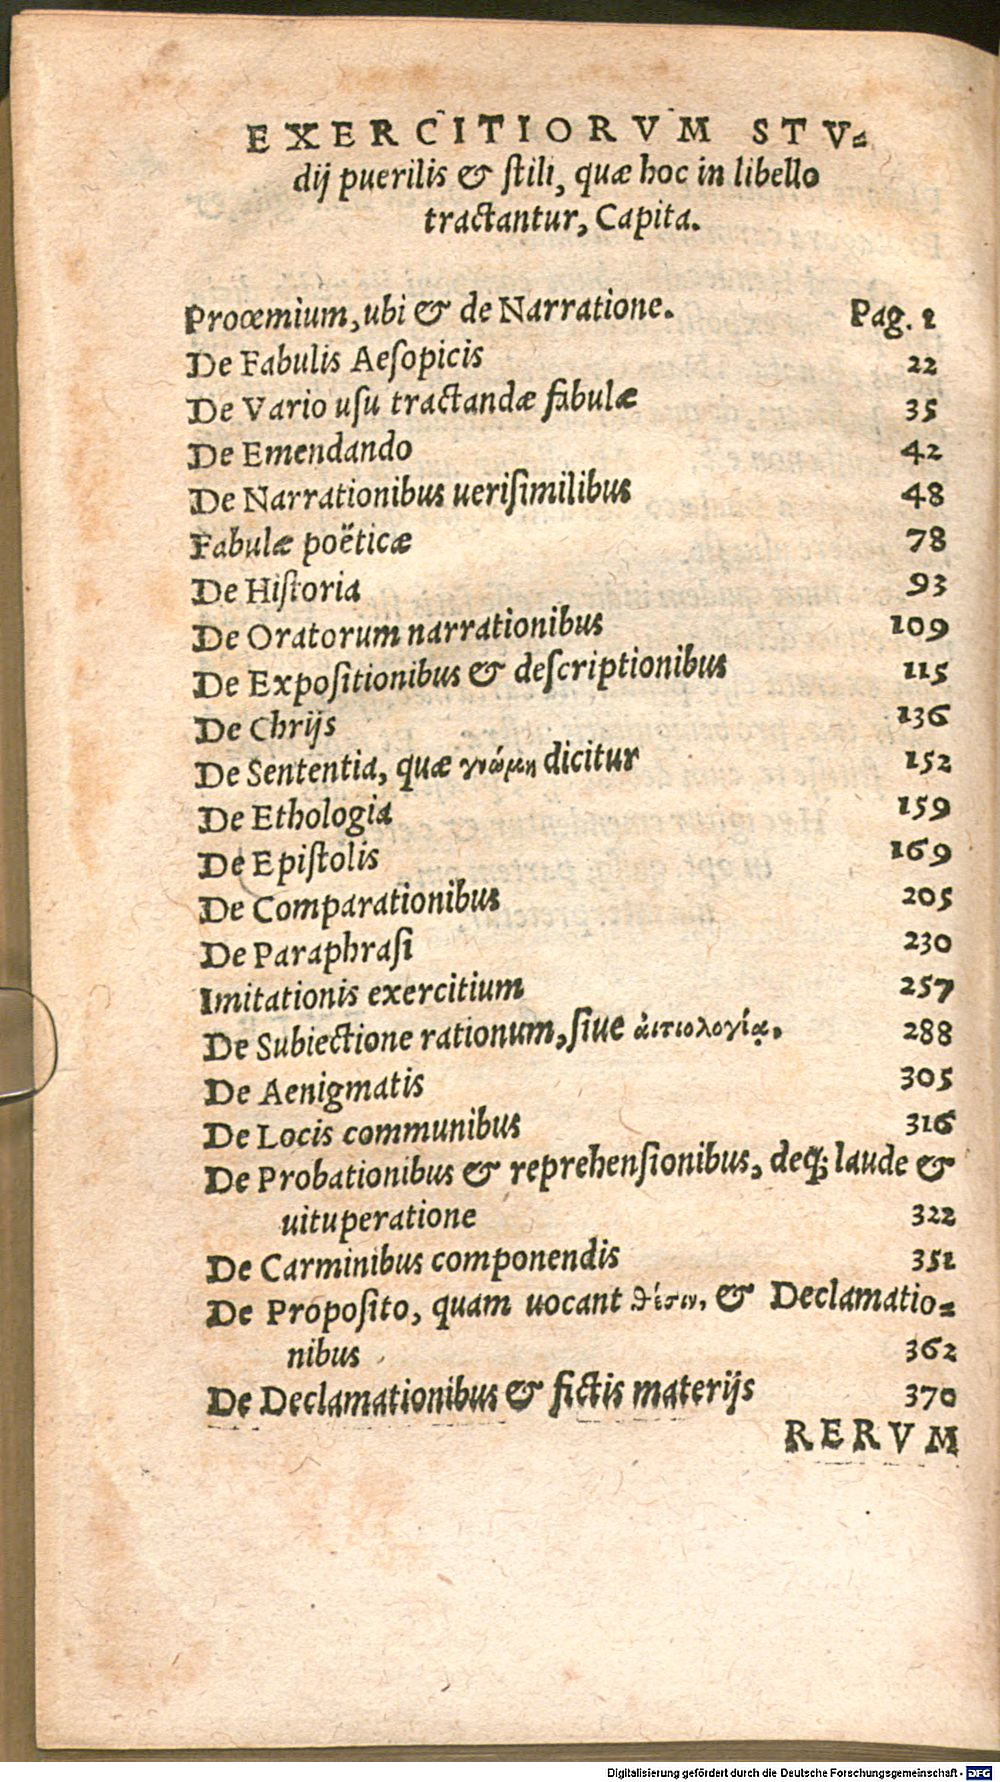 EXERCITIORVM STV-
dij puerilis & ſtili, quæ hoc in libello
tractantur, Capita.
Proœmium, ubi & de Narratione. Pag. 1
De Fabulis Aeſopicis 22
De Vario uſu tractandæ fabulæ 35
De Emendando 42
De Narrationibus ueriſimilibus 48
Fabulæ poëticæ 78
De Hiſtoria 93
De Oratorum narrationibus 109
De Expoſitionibus & deſcriptionibus 115
De Chrijs 136
De Sententia, quæ γνώμη dicitur 152
De Ethologia 159
De Epiſtolis 169
De Comparationibus 205
De Paraphraſi 230
Imitationis exercitium 257
De Subiectione rationum, ſiue ἀιτιολογίᾳ. 288
De Aenigmatis 305
De Locis communibus 316
De Probationibus & reprehenſionibus, deq; laude &
uituperatione 322
De Carminibus componendis 351
De Propoſito, quam uocant θέσιν, & Declamatio-
nibus 362
De Declamationibus & fictis materijs 370
RERVM
Digitalisierung gefördert durch die Deutsche Forschungsgemeinschaft - DFG